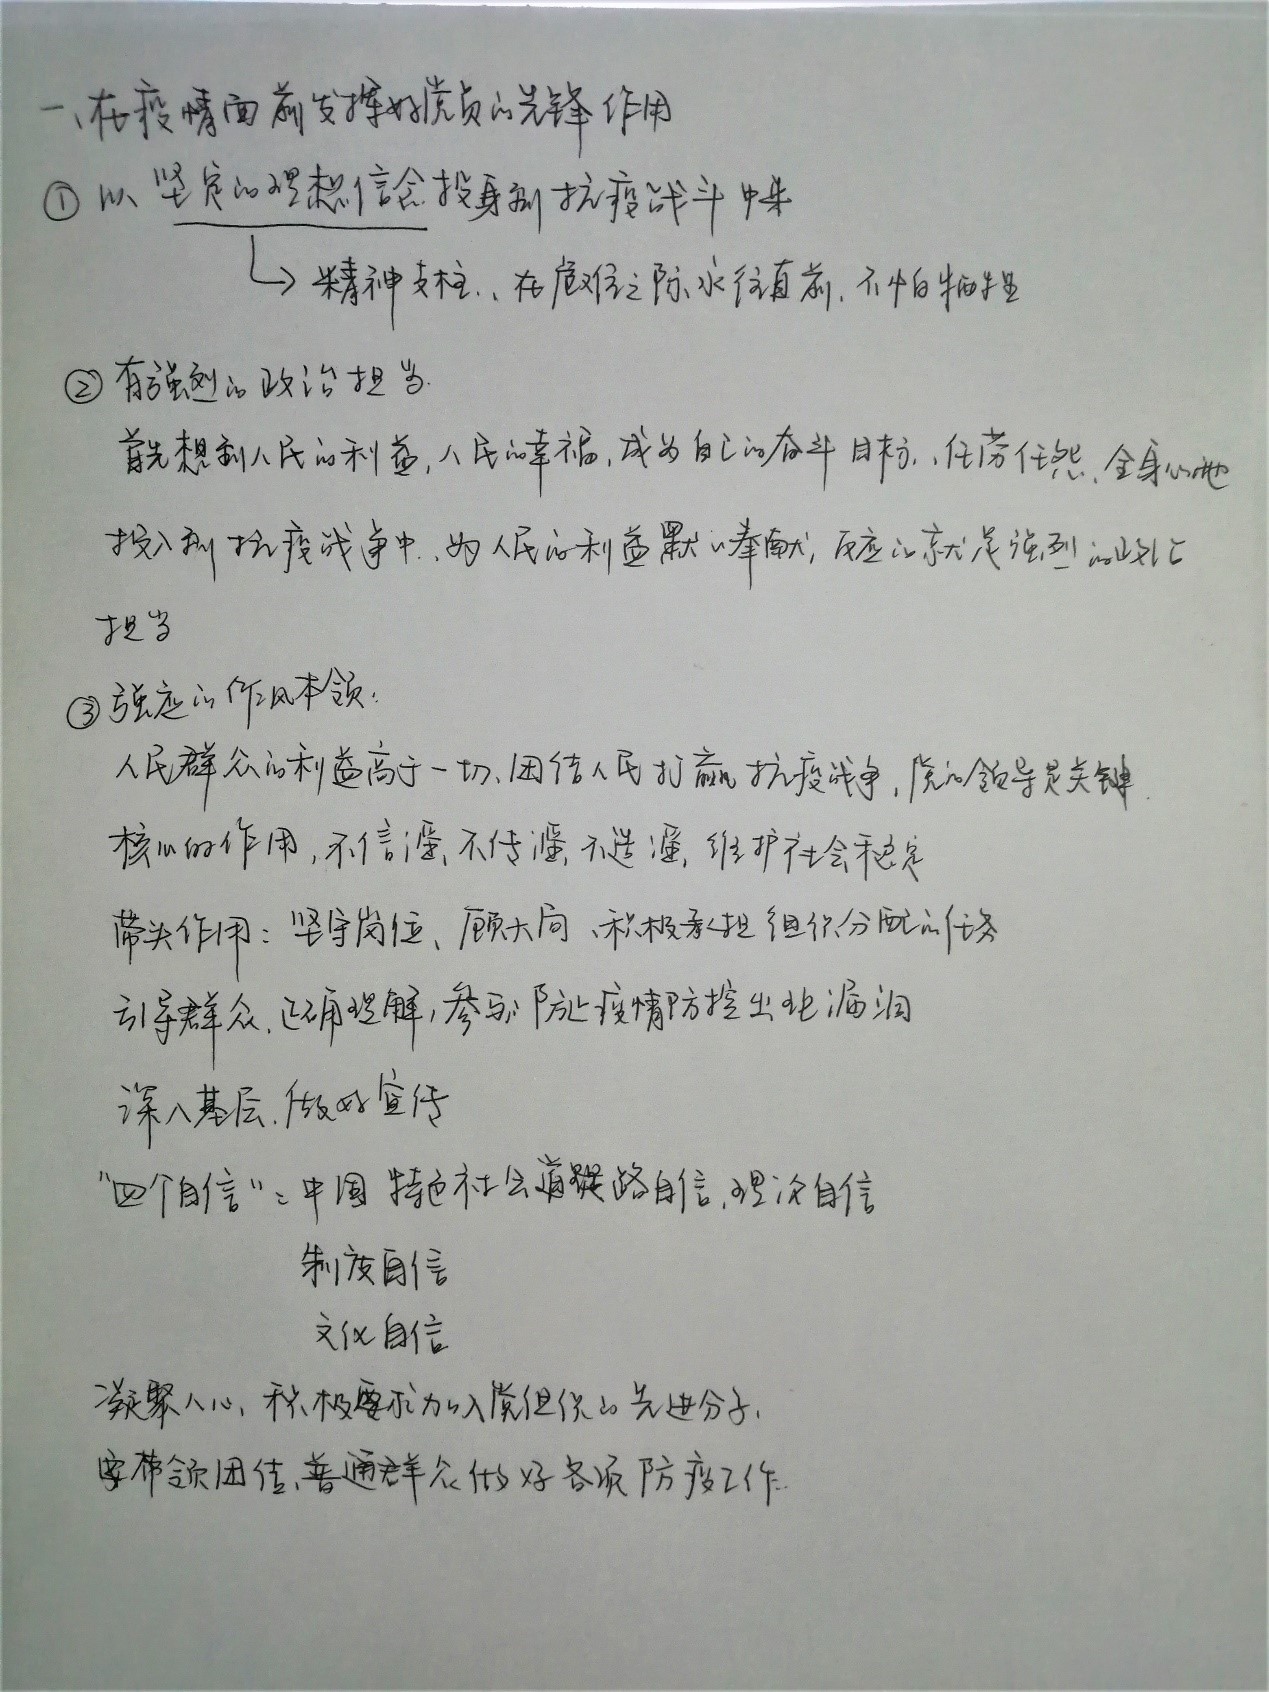 一、在疫情面前发挥好党员的先锋作用
① 以坚定的理想信念投身到抗疫战斗中来
精神支柱、在危难之际永往直前、不怕牺牲
② 有强烈的政治担当.
首先想到人民的利益,人民的幸福,成为自己的奋斗目标、任劳任怨、全身心地
投入到抗疫战争中、为人民的利益默默奉献,反应的就是强烈的政治
担当
③ 强应的作风本领:
人民群众的利益高于一切、团结人民打赢抗疫战争,党的领导是关键
核心的作用,不信谣,不传谣,不造谣,维护社会稳定
带头作用:坚守岗位、顾大局、积极承担组织分配的任务
引导群众、正确理解,参与防止疫情防控出现漏洞
深入基层、做好宣传
"四个自信":中国特色社会道路自信、理论自信
制度自信
文化自信
凝聚人心,积极要求加入党组织的先进分子,
带领团结、普通群众做好各项防疫工作.